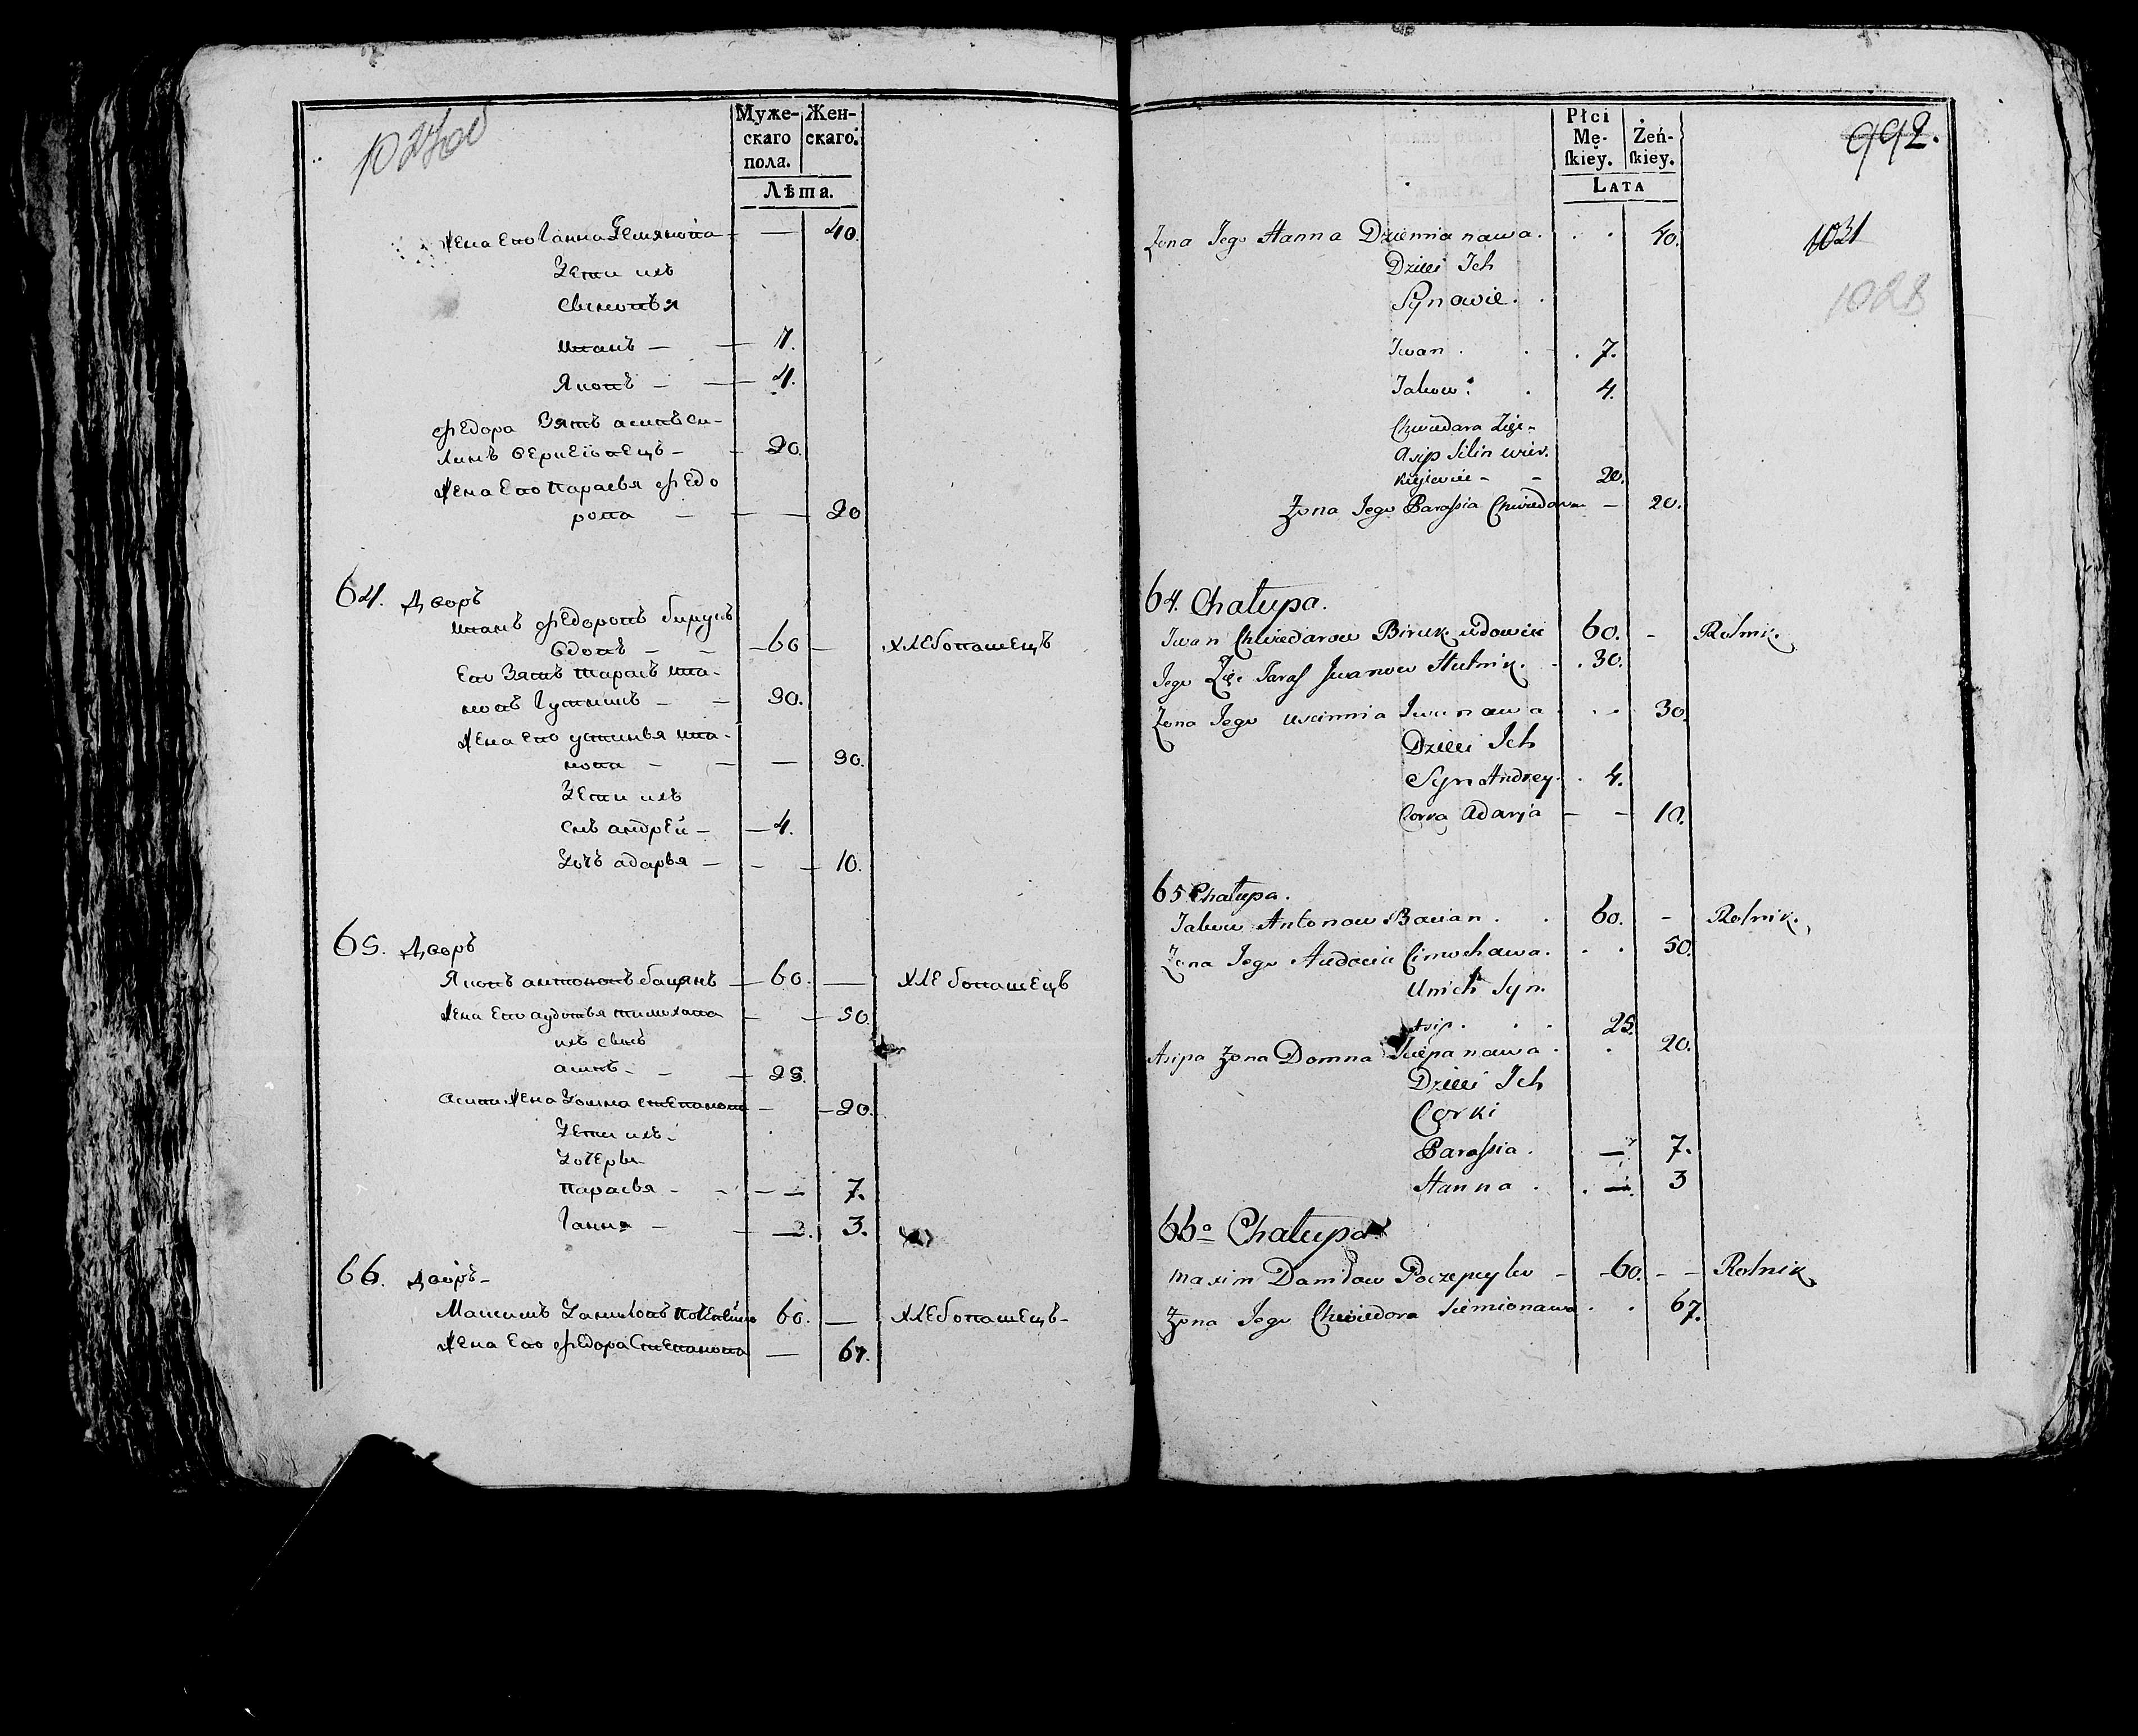 Муже-
скаго
пола.
Жен-
скаго.
Лѣта.
Жена Его Ганна Демянова — 40.
Дети ихъ
Сыновья
Иванъ — 7.
Яковъ — 4.
Федора Зять асипъ Си-
— 20.
Жена Его Парасья Федо
рова — 20
64. Дворъ
Иванъ Федоровъ бирукъ
вдовъ — 60 — хлебопашецъ
Его Зять Тарасъ Ива-
новъ — 30.
Жена его устинья Ива-
нова — 30.
Дети ихъ
Снъ андрей — 4.
Дочь адарья — 10.
65. Дворъ
Яковъ антоновъ бацянъ — 60. — хлебопашецъ
Жена Его аудотья тимохава — 50
ихъ сынъ
асипъ — 25.
Асипа Жена Домна степанова — 20.
Дети ихъ
Дочерьи
Парасья — 7.
Ганна — 3.
66. Дворъ
Максимъ Даниловъ 60. — хлебопашецъ
Жена Его Федора Степанова — 67.
Płci
Mę-
skiey.
Żeń-
skiey.
LATA
992.
1031
1028
Żona Jego Hanna Dziemianawa . . 40.
Dzieci Ich
Synowie . .
Iwan . . . 7.
Jakow . . 4.
Chwiedara Zięć
Asip Silin wier.
20.
Żona Jego Parasia Chwiedarow — 20.
64. Chałupa.
Iwan Chwiedarow Biruk wdowiec 60. - Rolnik.
Jego Zięć Taras Iwanow Hutnik . . 30.
Żona Jego Uscinnia Iwanawa . . 30.
Dzieci Ich
Syn Andrey . 4.
Corka Adarja — 10.
65 Chałupa.
Jakow Antonow Bacian . . 60. - Rolnik.
Żona Jego Audocia Cimochawa . . 50.
Unich Syn.
Asip . . . 25.
Asipa Żona Domna Sciepanawa . . 20.
Dzieci Ich
Corki
Parasia . — 7.
Hanna . — 3
66a Chałupa
Maxim Daniłow Poczepeylo — 60. — Rolnik.
Żona Jego Chwiedora Siemionawa . . 67.